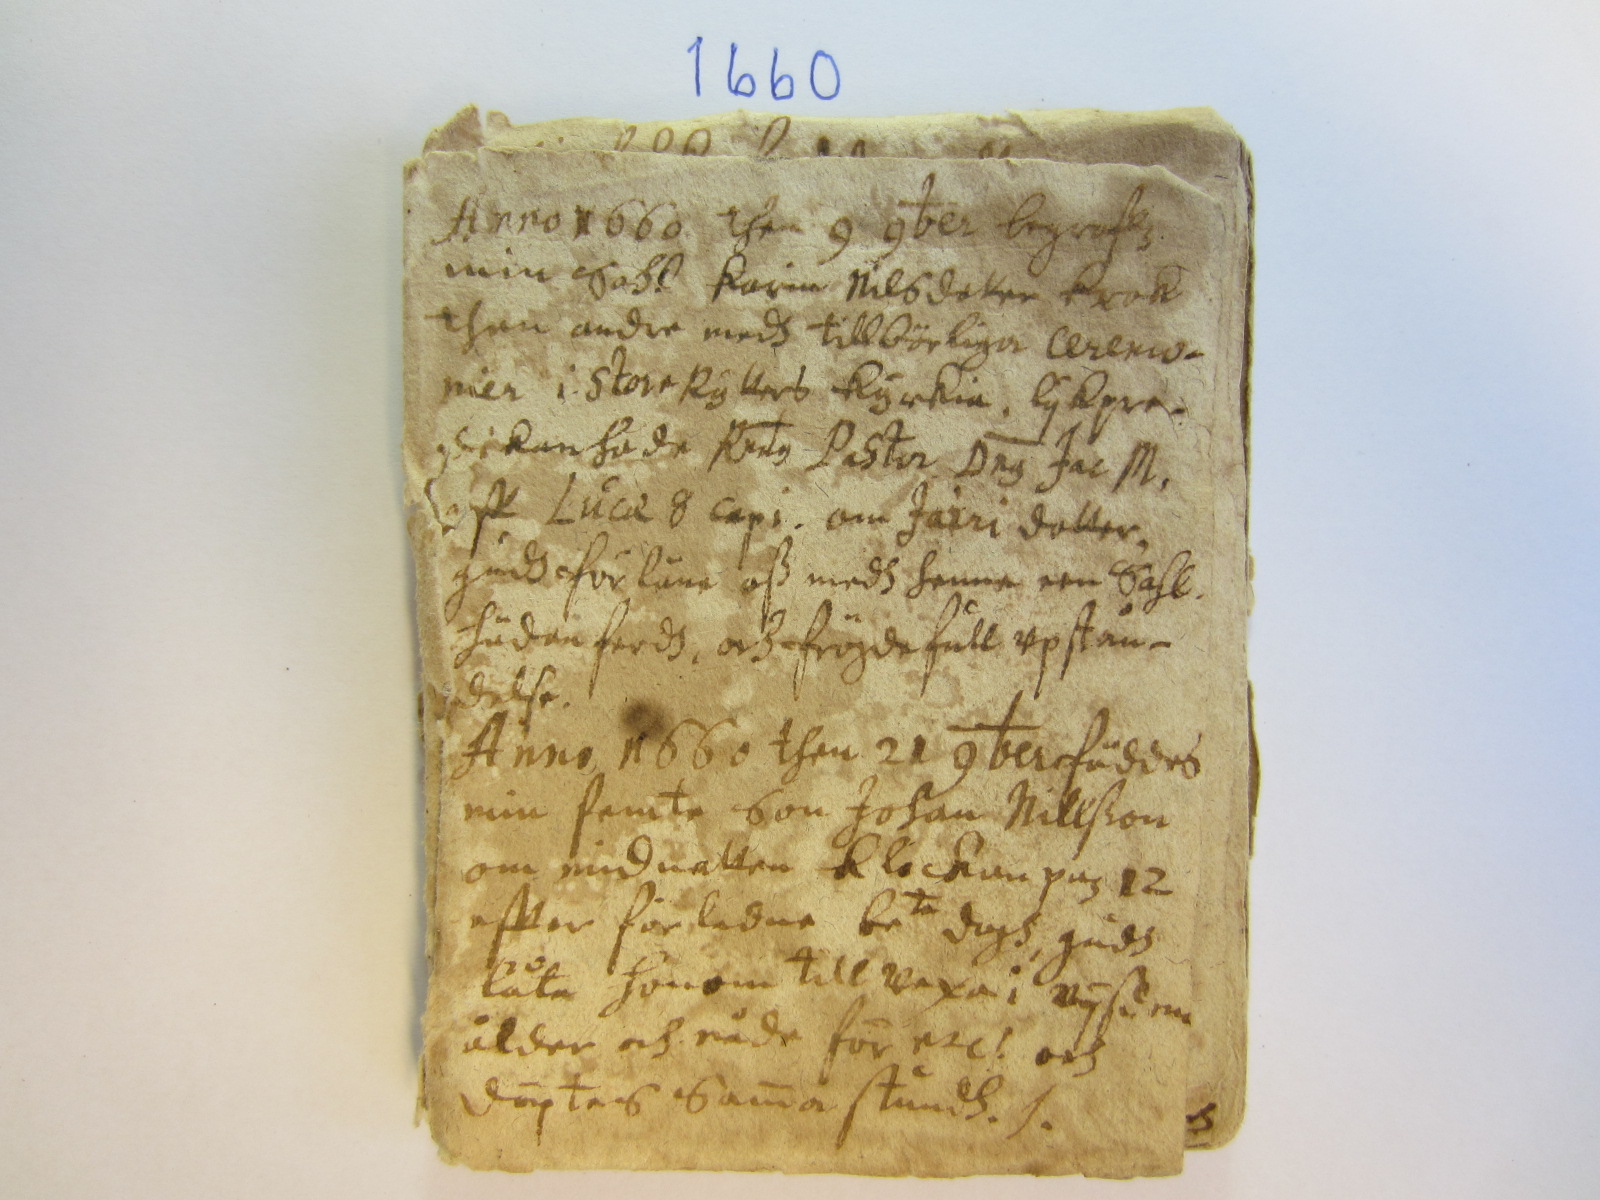 1660
Anno 1660 then 9 9ber begrofs
min Sahl Karin Nilsdotter Krok
then andre medh tillbörliga Ceremo-
nier i StoreRytters Kyrkia, lykpre-
dickan hade Pastor Dng Jac M,
aff Lucæ 8 capi. om Jairi dotter,
gudh förläne oss medh henne een Sahl.
hädenferdh, och frögdefull vpstån-
delse.
Anno 1660 then 21 9ber föddes
min femte Son Johan Nillsson
om midnatten klockan paz 12
effter förledne bete dagh, gudh
låte honom till vexa i vijsdom
ålder och nåde för etc! och
döptes Samma stundh.